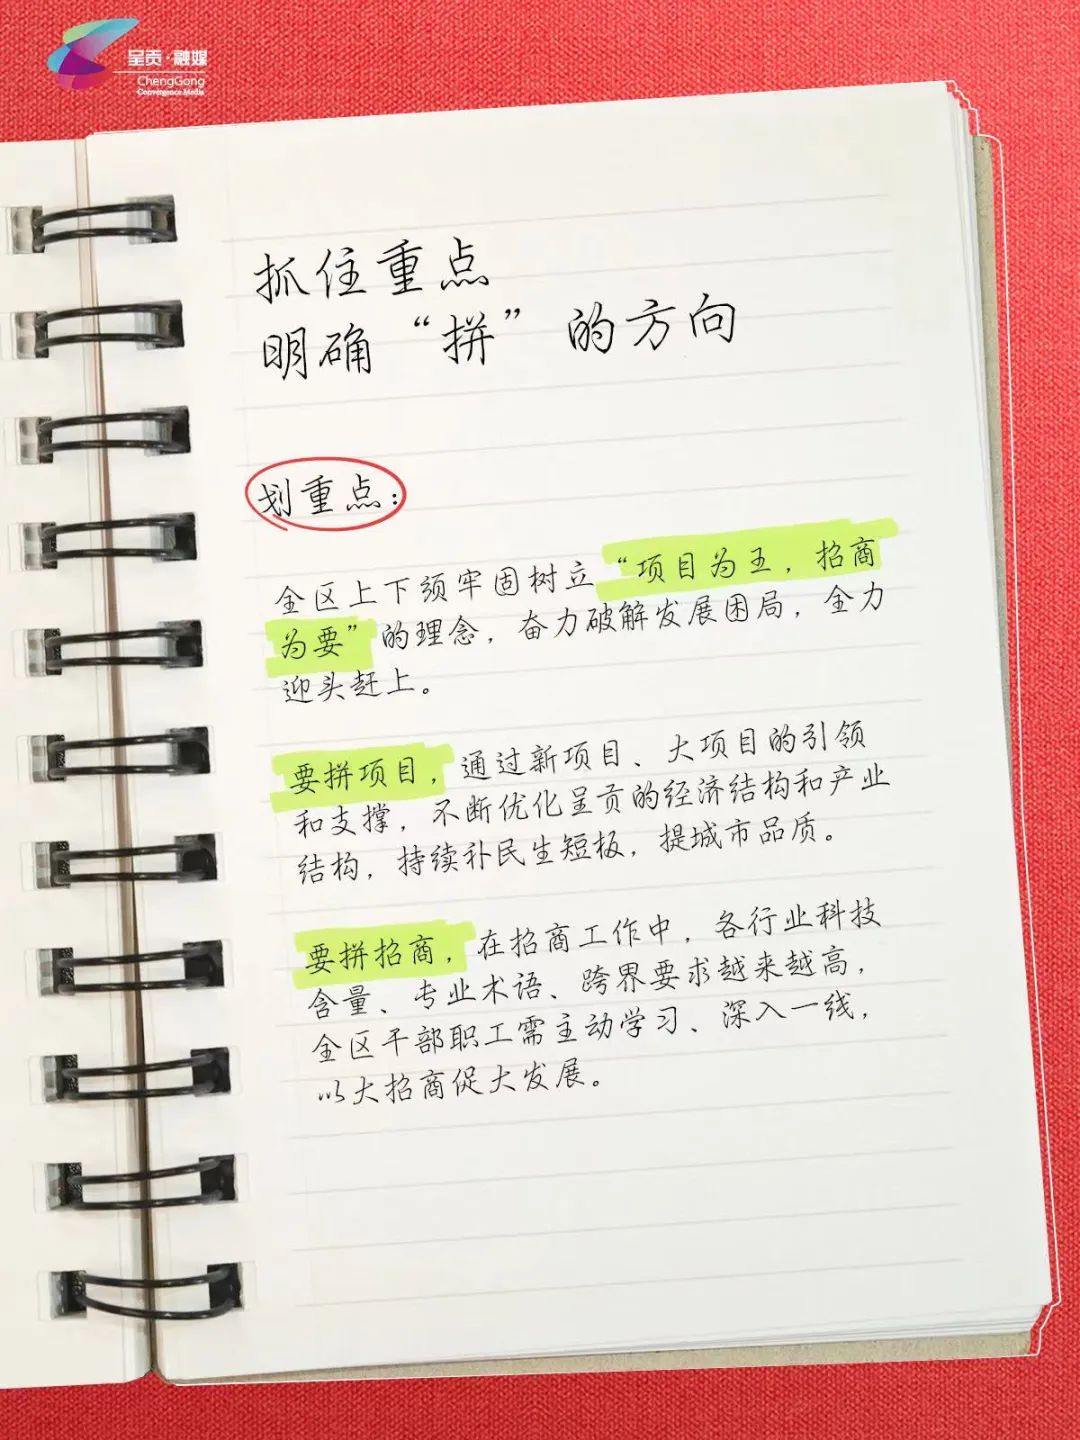 呈贡·融媒
ChengGong
Convergence Media
抓住重点
明确“拼”的方向
划重点：
全区上下须牢固树立“项目为王，招商
为要”的理念，奋力破解发展困局，全力
迎头赶上。
要拼项目，通过新项目、大项目的引领
和支撑，不断优化呈贡的经济结构和产业
结构，持续补民生短板，提城市品质。
要拼招商，在招商工作中，各行业科技
含量、专业术语、跨界要求越来越高，
全区干部职工需主动学习、深入一线，
以大招商促大发展。